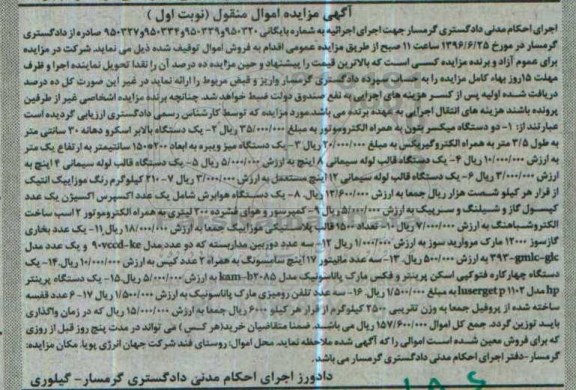 آگهی مزایده اموال منقول (نوبت اول )
اجرای احکام مدنی دادگستری گرمسار جهت اجرای اجرائیه به شماره بایگانی ۹۵۰۳۲۰-۹۵۰۳۳۹-۹۵۰۳۳۴-۹۵۰۳۲۷ صادره از دادگستری
گرمسار در مورخ ۱۳۹۶/۶/۲۵ ساعت ۱۱ صبح از طریق مزایده عمومی اقدام به فروش اموال توقیف شده ذیل می نماید. شرکت در مزایده
برای عموم آزاد و برنده مزایده کسی است که بالاترین قیمت را پیشنهاد و حین مزایده ده درصد آن را نقدا تحویل نماینده اجرا و ظرف
مهلت ۱۵روز بهاء کامل مزایده را به حساب سپرده دادگستری گرمسار واریز و قبض مربوط را ارائه نماید در غیر این صورت کل ده درصد
دریافت شده اولیه پس از کسر هزینه های اجرایی به نفع صندوق دولت ضبط خواهد شد. چنانچه برنده مزایده اشخاصی غیر از طرفین
پرونده باشند هزینه های انتقال اجرایی به عهده برنده می باشد.مورد مزایده که توسط کارشناس رسمی دادگستری ارزیابی گردیده است
عبارتند از: ۱- دو دستگاه میکسر بتون به همراه الکتروموتور به مبلغ ۳۵/۰۰۰/۰۰۰ ریال ۲- یک دستگاه بالابر اسکرو دهانه ۳۰ سانتی متر
به طول ۳/۵ متر به همراه الکتروگیربکس به مبلغ ۲۰/۰۰۰/۰۰۰ ریال ۳- یک دستگاه میز ویبره به ابعاد ۲۰۰*۱۵۰ سانتیمتر به ارتفاع یک متر
به ارزش ۱۰/۰۰۰/۰۰۰ ریال ۴- یک دستگاه قالب لوله سیمانی ۸ اینچ به ارزش ۵/۰۰۰/۰۰۰ ریال ۵- یک دستگاه قالب لوله سیمانی ۴ اینچ به
ارزش ۳/۰۰۰/۰۰۰ ریال ۶- یک دستگاه قالب لوله سیمانی ۱۲ اینچ مستعمل به ارزش ۳/۰۰۰/۰۰۰ ریال ۷- ۲۱۰ کیلوگرم رنگ موزاییک آنتیک
از قرار هر کیلو شصت هزار ریال جمعا به ارزش ۱۲/۶۰۰/۰۰۰ ریال. ۸- یک دستگاه هوابرش شامل یک عدد اکسپرس اکسیژن یک عدد
کپسول گاز و شیلنگ و سرپیک به ارزش ۵/۰۰۰/۰۰۰ ریال ۹- کمپرسور و هوای فشرده ۲۰۰ لیتری به همراه الکتروموتور ۲ اسب ساخت
الکتروشباهنگ به ارزش ۷/۰۰۰/۰۰۰ ۱۰- تعداد ۱۵۰۰ قالب پلاستیکی موزاییک جمعا به ارزش ۱۸/۰۰۰/۰۰۰ ریال ۱۱- یک عدد بخاری
گازسوز ۱۲۰۰۰ مارک مروارید سوز به ارزش ۱/۰۰۰/۰۰۰ ریال ۱۲- سه عدد دوربین مداربسته که دو عدد مدل ۹۰vccd-ke و یک عدد مدل
۳۹۳-gmlc-glc به ارزش ۵۰۰/۰۰۰ ریال. ۱۳- سه عدد مانیتور ۱۷ اینچ سامسونگ به همراه ۲ عدد کیس به ارزش ۱۰/۰۰۰/۰۰۰ ریال.۱۴- یک
دستگاه چهارکاره فتوکپی اسکن پرینتر و فکس مارک پاناسونیک مدل kam-b۲۰۸۵ به ارزش ۵/۰۰۰/۰۰۰ ریال.۱۵- یک دستگاه پرینتر
hp مدل laserget p ۱۱۰۲ به مبلغ ۱/۵۰۰/۰۰۰ ریال. ۱۶- سه عدد تلفن رومیزی مارک پاناسونیک به ارزش ۱/۵۰۰/۰۰۰ ریال ۱۷- ۶ عدد قفسه
ساخته شده از پروفیل جمعا به وزن تقریبی ۲۵۰۰ کیلوگرم از قرار هر کیلو ۶۰۰۰ ریال جمعا به ارزش ۱۵/۰۰۰/۰۰۰ ریال که در زمان واگذاری
بایسد توزین گردد. جمع کل اموال ۱۵۷/۶۰۰/۰۰۰ ریال می باشد. ضمنا متقاضیان خرید(هر کس ) می تواند در مدت پنج روز قبل از روزی
که برای فروش معین شده است اموالی را که آگهی شده ملاحظه نماید. محل اموال: روستای فند شرکت جهان انرژی پویا. مکان مزایده:
گرمسار-دفتر اجرای احکام مدنی دادگستری گرمسار می باشد.
دادورز اجرای احکام مدنی دادگستری گرمسار- گیلوری